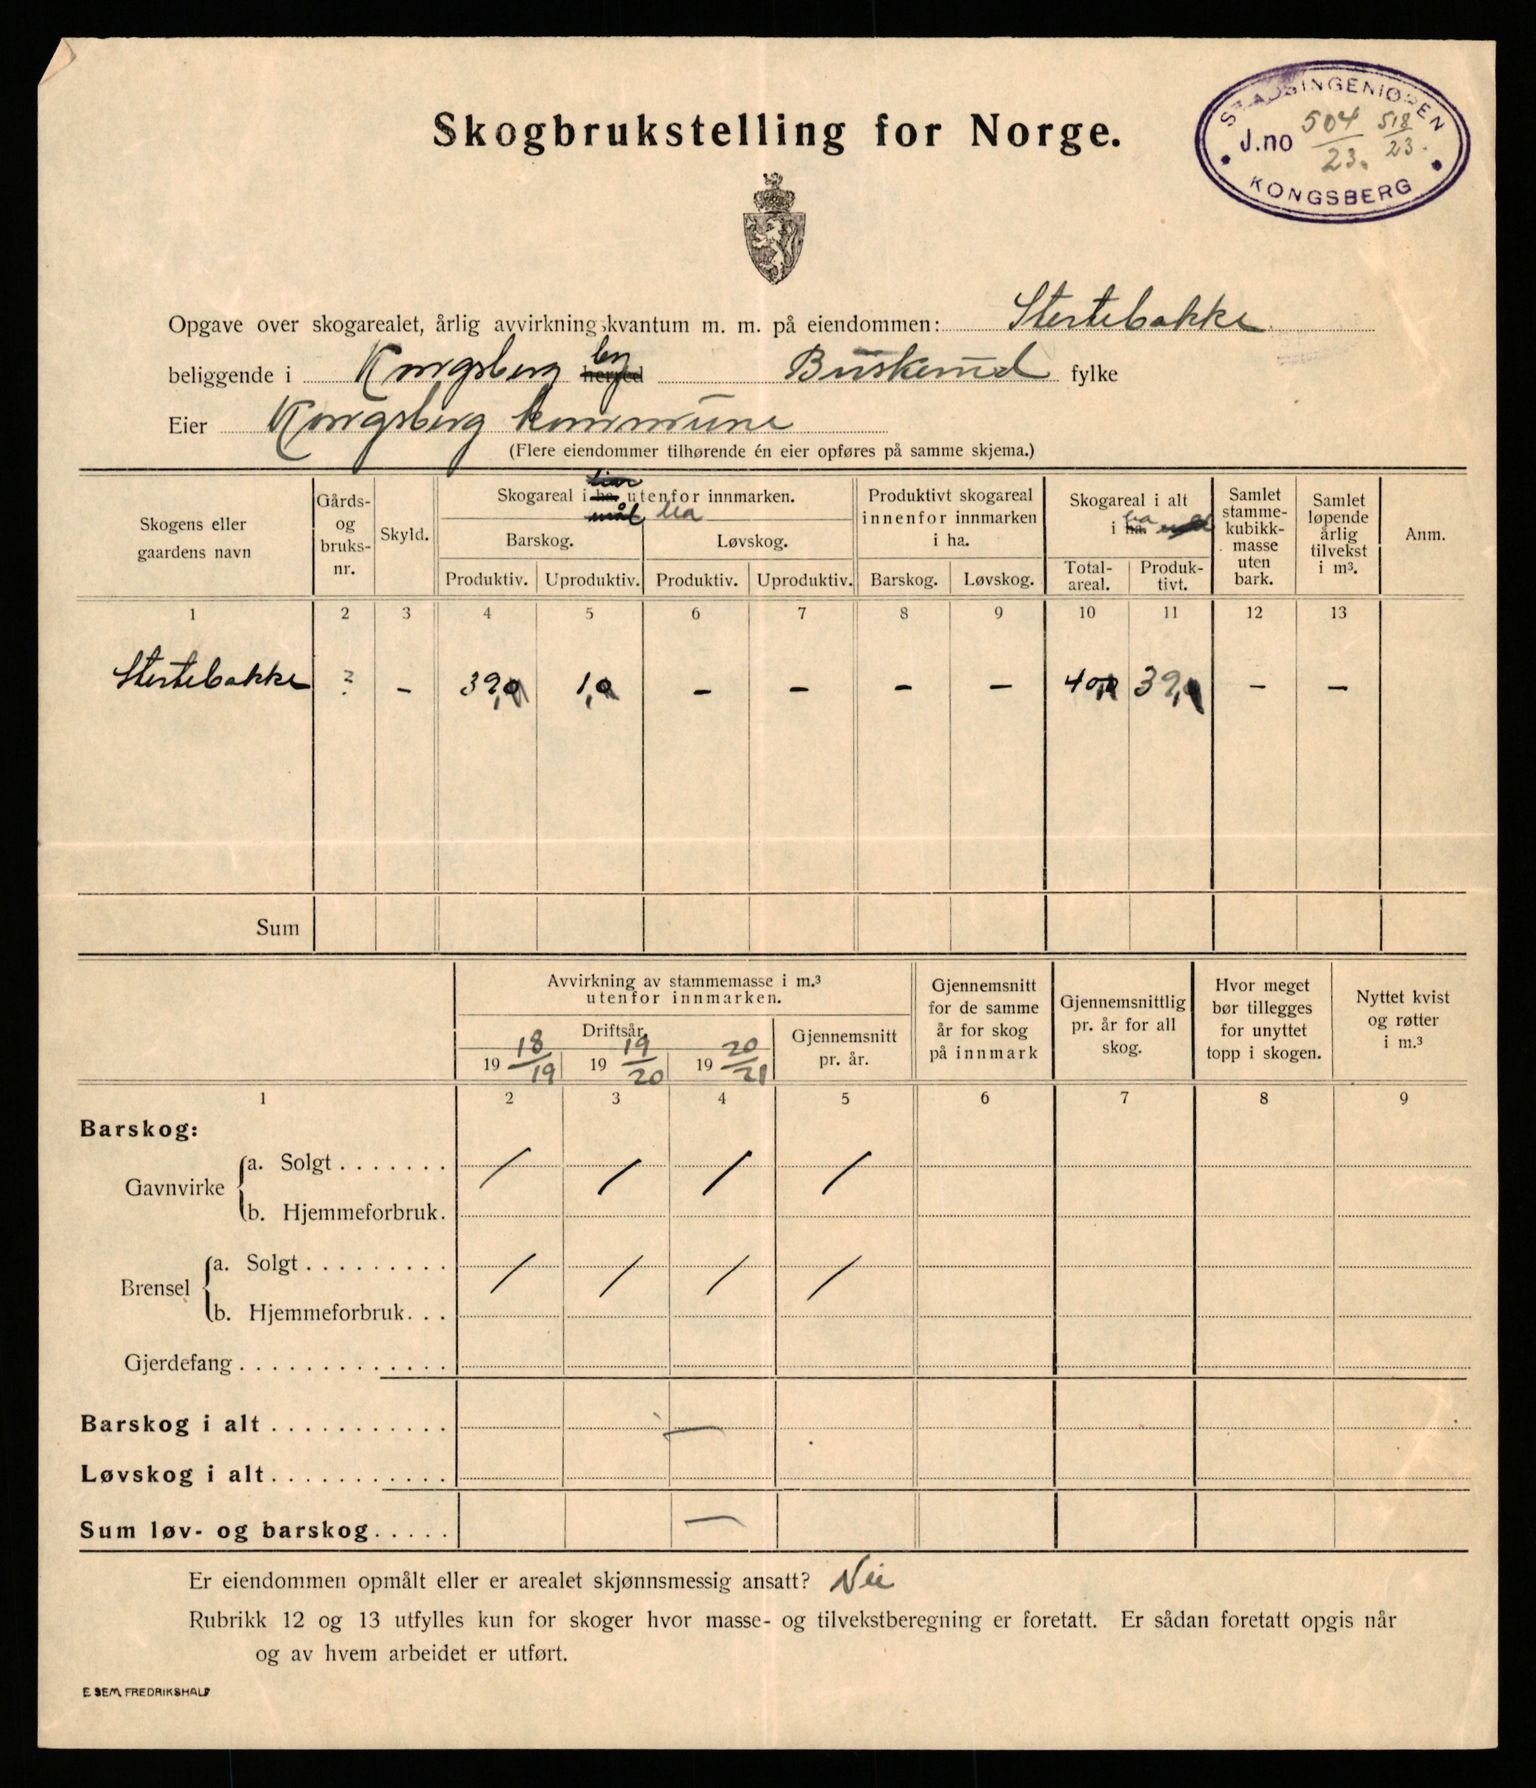 Skogbrukstelling for Norge.
STADSINGENIØREN
J.no 504/23. 518/23.
KONGSBERG
Opgave over skogarealet, årlig avvirkningskvantum m. m. på eiendommen: Stertebakke
beliggende i Kongsberg herred by Buskerud fylke
Eier Kongsberg kommune
(Flere eiendommer tilhørende én eier opføres på samme skjema.)
Skogens eller gaardens navn
Gårds- og bruks- nr.
Skyld.
Skogareal i ha. utenfor innmarken.
mål ha
Barskog.
Løvskog.
Produktiv. Uproduktiv. Produktiv. Uproduktiv.
Produktivt skogareal innenfor innmarken i ha.
Barskog. Løvskog.
Skogareal i alt
i ha. ha
Total- areal.
Produk- tivt.
Samlet stamme- kubikk- masse uten bark.
Samlet løpende årlig tilvekst i m³.
Anm.
1 2 3 4 5 6 7 8 9 10 11 12 13
Stertebakke ? – 39,0 1,0 – – – – 40,0 39,0 – –
Sum
Avvirkning av stammemasse i m.³
utenfor innmarken.
Driftsår.
19 18/19 19 19/20 19 20/21
Gjennemsnitt pr. år.
Gjennemsnitt for de samme år for skog på innmark
Gjennemsnittlig pr. år for all skog.
Hvor meget bør tillegges for unyttet topp i skogen.
Nyttet kvist og røtter i m.³
1 2 3 4 5 6 7 8 9
Barskog:
Gavnvirke
a. Solgt . . . . . . . / / / /
b. Hjemmeforbruk.
Brensel
a. Solgt . . . . . . . . . / / / /
b. Hjemmeforbruk. . .
Gjerdefang . . . . . . . . . . . . .
Barskog i alt . . . . . . . . . . . –
Løvskog i alt. . . . . . . . . . .
Sum løv- og barskog . . . . . –
Er eiendommen opmålt eller er arealet skjønnsmessig ansatt? Nei
Rubrikk 12 og 13 utfylles kun for skoger hvor masse- og tilvekstberegning er foretatt. Er sådan foretatt opgis når
og av hvem arbeidet er utført.
E. SEM, FREDRIKSHALD